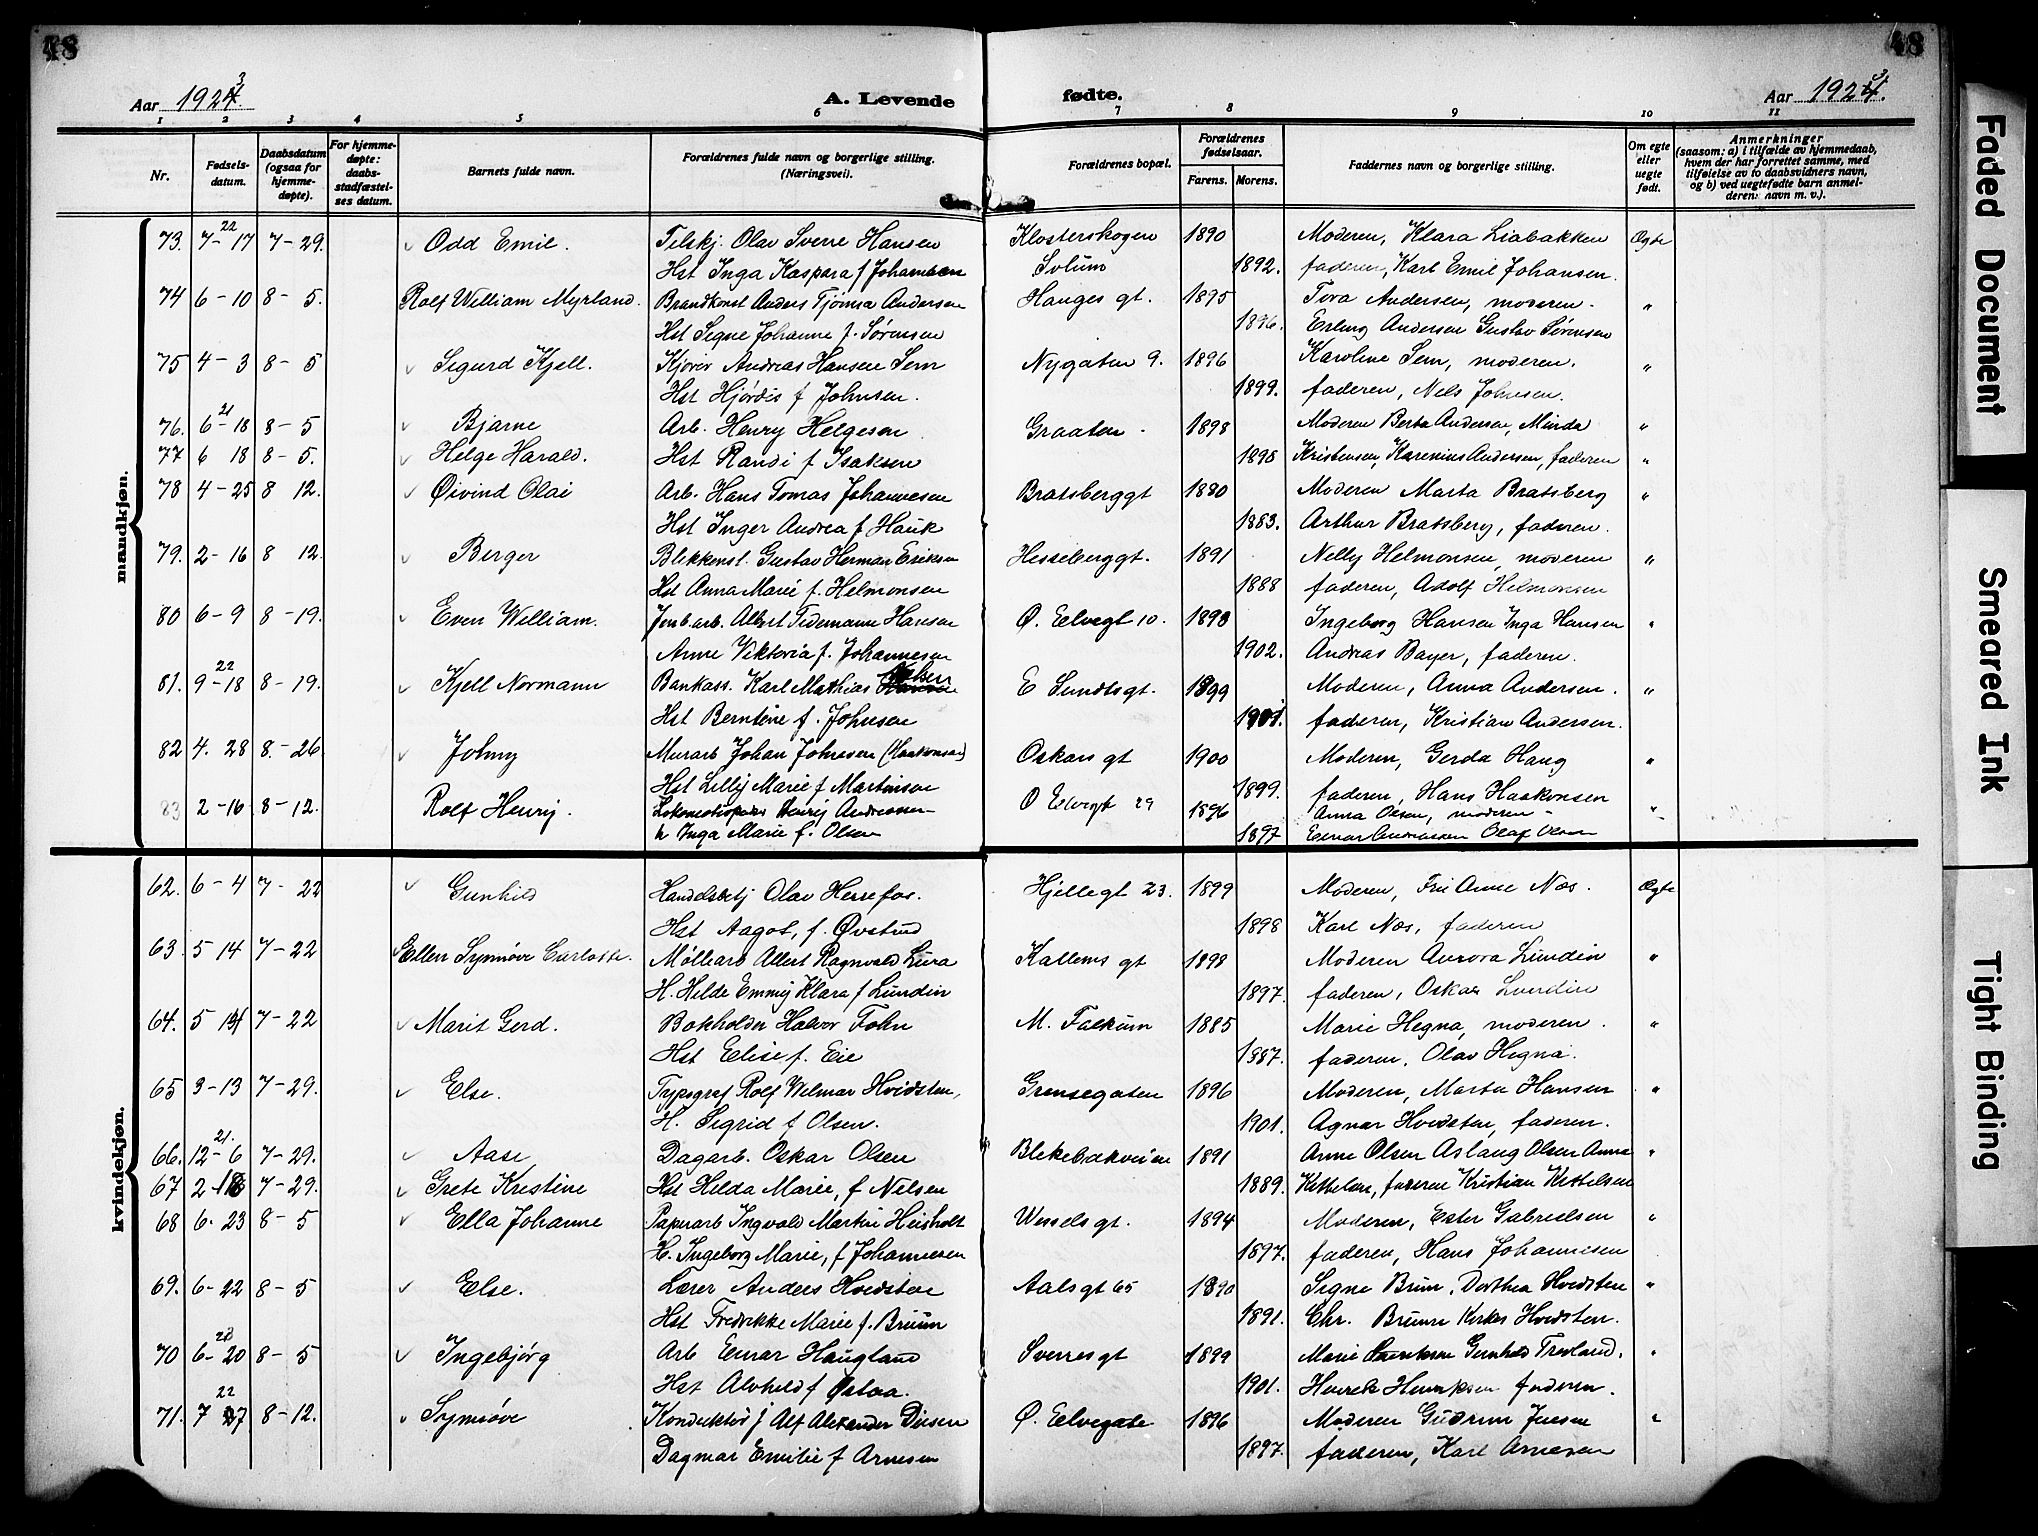 48
48
Aar 1923.
A. Levende
fødte.
Aar 1923.
1 2 3 4 5 6 7 8 9 10 11
Nr.
Fødsels-datum.
Daabsdatum (ogsaa for hjemme-døpte).
For hjemme-døpte: daabs-stadfæstel-ses datum.
Barnets fulde navn.
Forældrenes fulde navn og borgerlige stilling. (Næringsvei).
Forældrenes bopæl.
Forældrenes fødselsaar.
Farens. Morens.
Faddernes navn og borgerlige stilling.
Om egte eller uegte født.
Anmerkninger (saasom: a) i tilfælde av hjemmedaab, hvem der har forrettet samme, med tilføielse av to daabsvidners navn, og b) ved uegtefødte barn anmel-deren: navn m. v.).
mandkjøn.
73. 7-22 17 7-29. Odd Emil. Telskj. Olav Sverre Hansen Klosterskogen 1890 Moderen, Klara Liabakken Ægte
Hst Inga Kaspara f Johansen Solum 1892. faderen, Karl Emil Johansen.
74 6-10 8-5. Rolf William Myrland. Brandkonst Anders Tjømsa Andersen Hauges gt. 1895 Tora Andersen, moderen. "
Hst Signe Johanne f. Sørensen 1896. Erling Andersen Gustav Sørensen
75 4-3 8-5 Sigurd Kjell. Kjører Andreas Hansen Sem Nygaten 9. 1896 Karoline Sem, moderen. "
Hst Hjørdis f Johnsen. 1899. faderen, Nels Johnsen.
76. 6-21 18 8-5 Bjarne Arb. Henry Helgesen Graaten. 1898 Moderen Berta Andersen, Minda "
77 6 18 8-5. Helge Harald. Hst Randi f Isaksen 1898 Kristensen, Karenius Andersen, faderen "
78 4-25 8 12. Øivind Olai Arb. Hans Tomas Johannesen Bratsberggt 1880 Moderen Marta Bratsberg "
Hst Inger Andrea f Hauk 1883. Arthur Bratsberg, faderen.
79. 2-16 8 12. Berger Blikkensl. Gustav Herman Eriksen Hesselberggt. 1891 Nelly Helmonsen, moderen "
Hst Anna Marie f. Helmonsen 1888 faderen, Adolf Helmonsen
80 6-9 8-19. Even William. Jernb.arb. Albert Tidemann Hansen Ø. Elvegt 10. 1898 Ingeborg Hansen Inga Hansen "
Anne Viktoria f. Johannesen 1902. Andreas Bayer, faderen.
81. 9-22 18 8-19. Kjell Normann Bankass. Karl Mathias E Sundtsgt. 1899 Moderen, Anna Andersen. "
Hst Berntine f. Johnsen 1901. faderen, Kristian Andersen.
82 4. 28 8-26 Johny Murarb Johan Johnsen (Haakonsen) Oskars gt 1900 Moderen, Gerda Haug "
Hst Lilly Marie f Martinsen 1899. faderen, Hans Haakonsen
83 2-16 8-12. Rolf Henry. Henry Andreassen Ø Elvegt 29 1896 Anna Olsen, moderen "
h Inga Marie f. Olsen 1897 Einar Andreassen Olaf Olsen
kvindekjøn.
62. 6-4 7-22 Gunhild Handelsbetj Olav Herrefos. Hjellegt 23. 1899 Moderen, Fru Anne Næs. Ægte
Hst Aagot, f. Øvstrud 1898 Karl Næs, faderen
63. 5 14 7-22 Ellen Synnøve Carlotte. Møllearb Albert Ragnvald Lura Kallems gt 1898 Moderen Aurora Lundin "
H. Hilde Emmy Klara f Lundin 1897. faderen, Oskar Lundin
64. 5 14 7-22 Marit Gerd. Bokholder Halvor Tohn M. Falkum 1885 Marie Hegna, moderen. "
Hst Elise f. Eie 1887. faderen, Olav Hegna.
65 3-13 7-29. Else. Typograf Rolf Wilmar Hvidsten, Grensegaten 1896 Moderen, Marta Hansen "
H. Sigrid f Olsen. 1901. Agnar Hvidsten, faderen.
66. 12-21. 6 7-29. Aase Dagarb. Oskar Olsen Blekebakveien 1891 Anne Olsen Aslaug Olsen Anna "
67 2-18 7-29. Grete Kristine Hst Hilda Marie, f Nilsen 1889. Kittilsen, faderen Kristian Kittelsen
68 6-23 8-5 Ella Johanne Papirarb Ingvald Martin Heisholt Wessels gt. 1894 Moderen, Ester Gabrielsen "
H. Ingeborg Marie, f Johannesen 1897. faderen, Hans Johannesen
69. 6-22 8-5 Else. Lærer Anders Hvidsten Aalsgt 65 1890 Signe Bruun, Dorthea Hvidsten "
Hst Fredrikke Marie f. Bruun 1891. Chr. Bruun Hvidsten.
70 6-20 8-5 Ingebjørg Arb Einar Haugland Sverresgt 1899 Marie Gunhild "
Hst Alvhild f Østaa. 1901. Henrik Henriksen faderen.
71. 7 22 27 8-12. Synnøve Konduktør j Alf Alexander Diesen Ø. Elvegate 1896 Moderen Gudrun Jensen "
Dagmar Emilie f Arnesen 1897. faderen, Karl Arnesen
Faded Document
Smeared Ink
Tight Binding